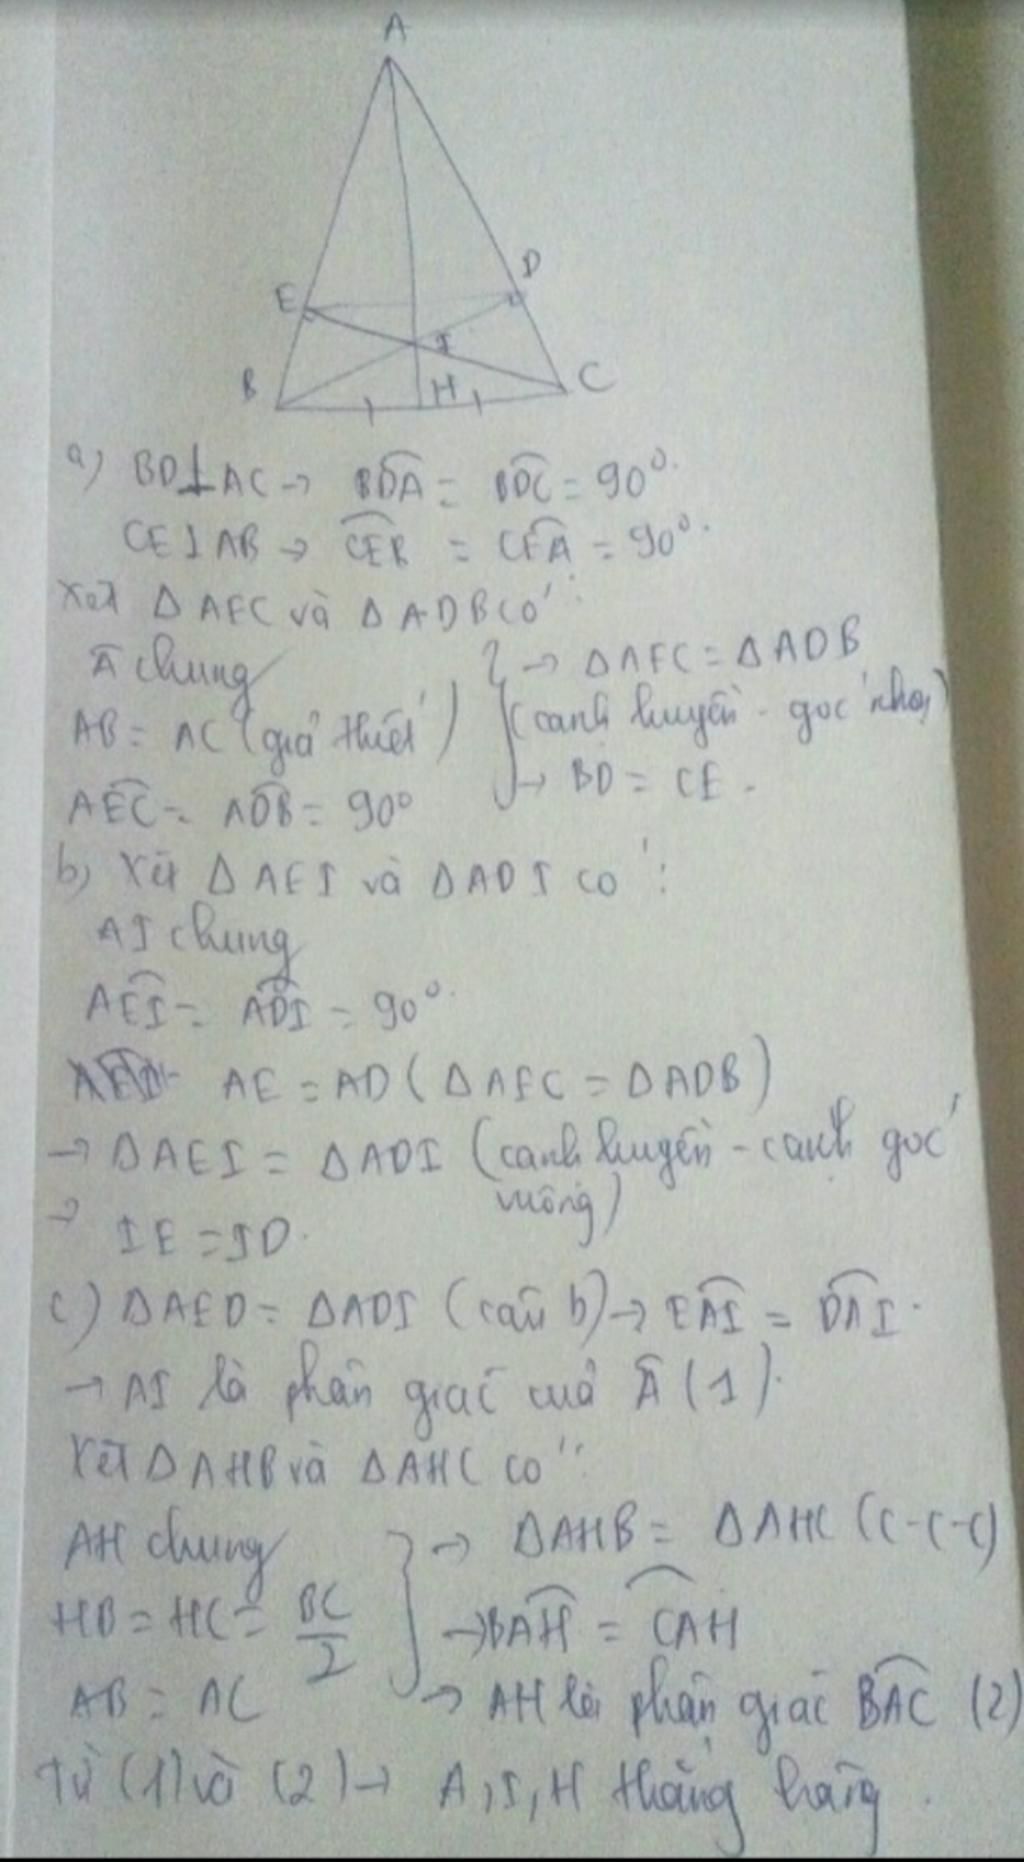 A
E
D
I
B
H
C
a) BD⊥AC → BDA = BDC = 90°.
CE⊥AB → CEB = CEA = 90°.
Xét Δ AEC và Δ ADB có:
A chung
AB = AC (giả thiết)
AEC = ADB = 90°
→ ΔAEC = ΔADB
(cạnh huyền - góc nhọn)
→ BD = CE.
b) Xét ΔAEI và ΔADI có:
AI chung
AEI = ADI = 90°.
AE = AD (ΔAEC = ΔADB)
→ ΔAEI = ΔADI (cạnh huyền - cạnh góc
vuông)
→ IE = ID.
c) ΔAED = ΔADI (câu b) → EAI = DAI.
→ AI là phân giác của A (1).
Xét ΔAHB và ΔAHC có:
AH chung
HB = HC = BC/2
AB = AC
→ ΔAHB = ΔAHC (c-c-c)
→ BAH = CAH
→ AH là phân giác BAC (2)
Từ (1) và (2) → A, I, H thẳng hàng.